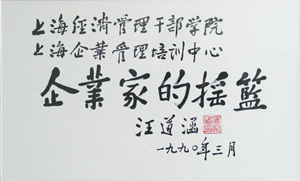 上海经濟管理干部学院
上海企業管理培训中心
企業家的摇籃
汪道涵
一九九〇年三月